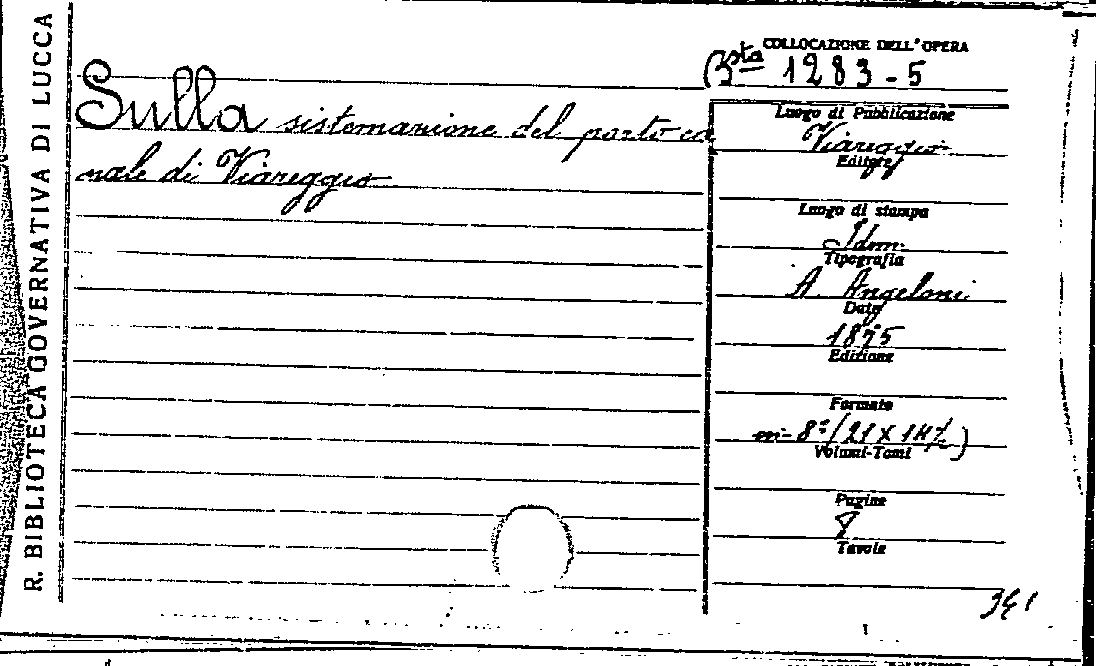 R. BIBLIOTECA GOVERNATIVA DI LUCCA
COLLOCAZIONE DELL'OPERA
Bsta 1283-5
Sulla sistemazione del porto ca
nale di Viareggio
Luogo di Pubblicazione
Viareggio
Editore
Luogo di stampa
Idem
Tipografia
A. Angeloni
Data
1875
Edizione
Formato
in-8°(21 X 14½)
Volumi-Tomi
Pagine
8
Tavole